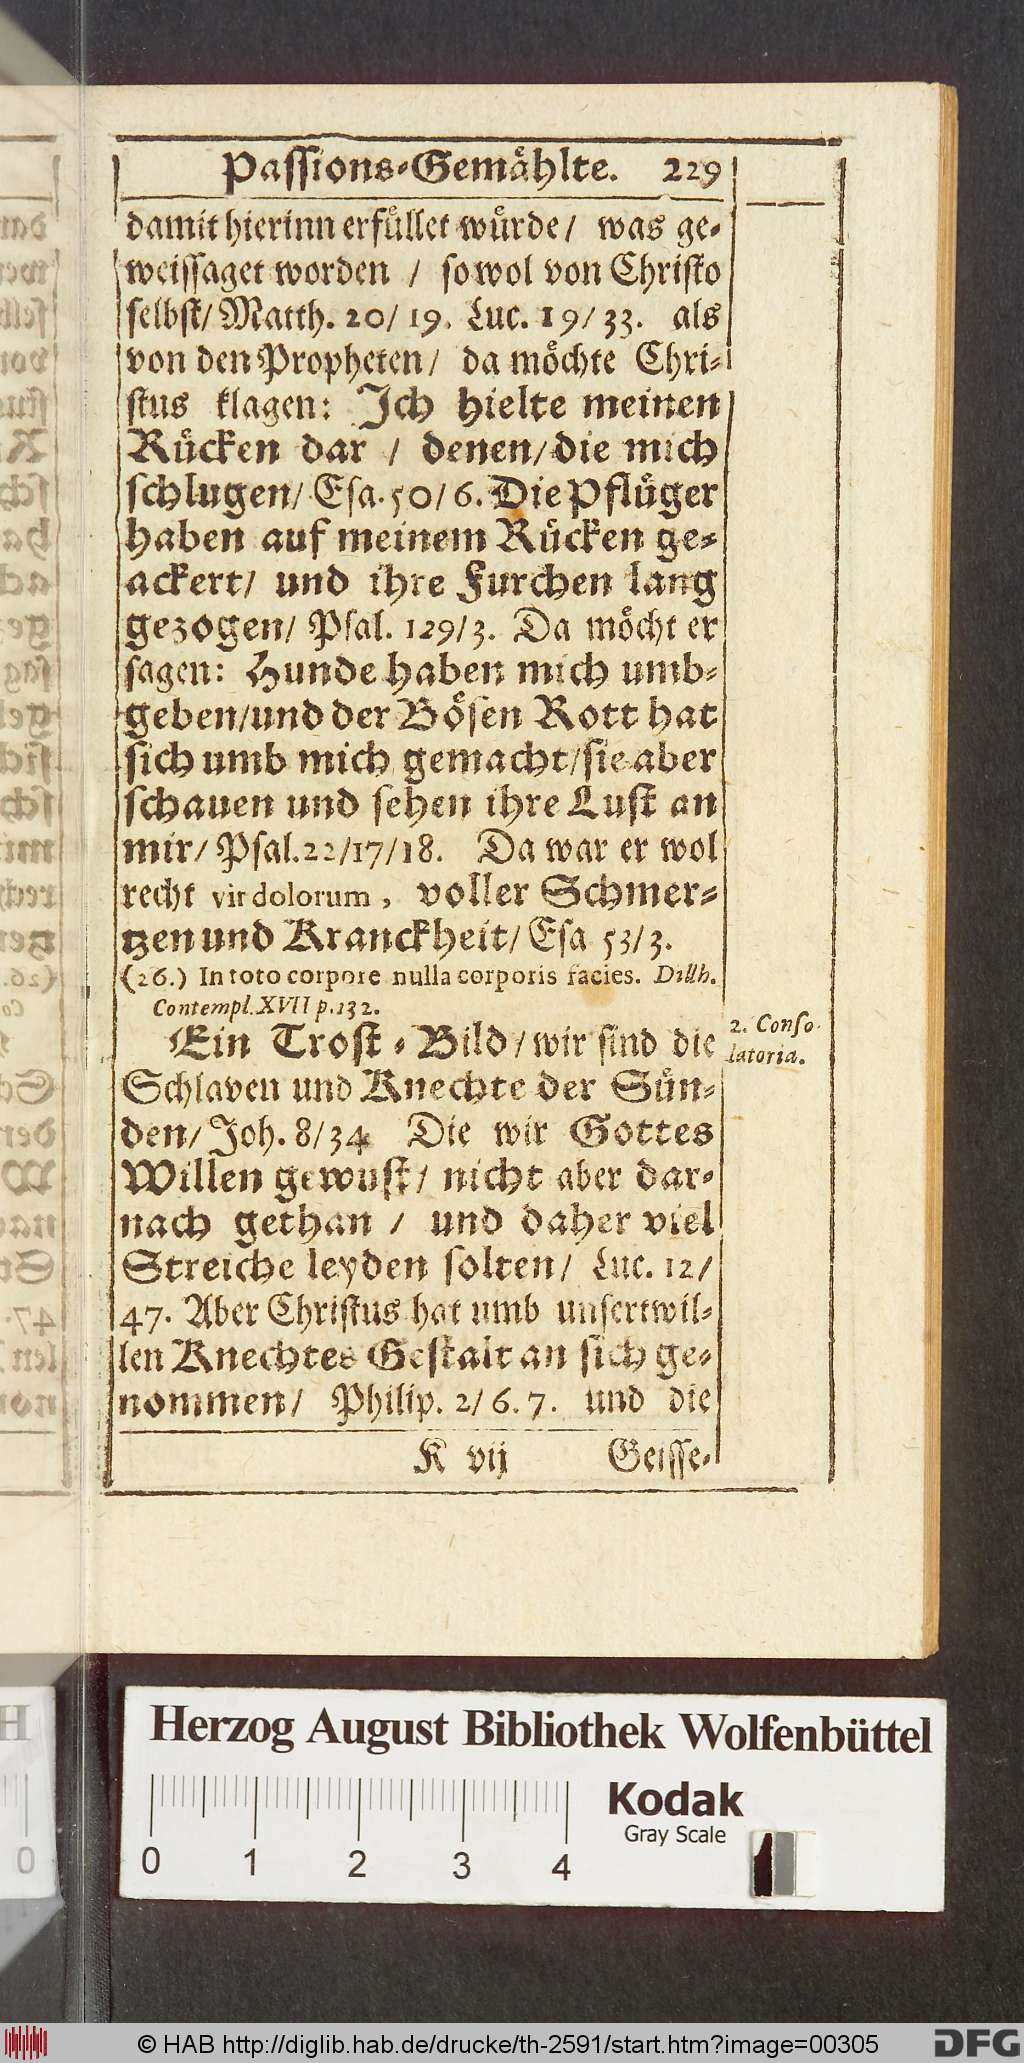 Passions-Gemählte. 229
damit hierinn erfüllet würde/ was ge-
weissaget worden / sowol von Christo
selbst/ Matth. 20/ 19. Luc. 19/ 33. als
von den Propheten/ da möchte Chri-
stus klagen: Ich hielte meinen
Rücken dar / denen/ die mich
schlugen/ Esa. 50/ 6. Die Pflüger
haben auf meinem Rücken ge-
ackert/ und ihre Furchen lang
gezogen/ Psal. 129/3. Da möcht er
sagen: Hunde haben mich umb-
geben/und der Bösen Rott hat
sich umb mich gemacht/sie aber
schauen und sehen ihre Lust an
mir/ Psal. 22/17/18. Da war er wol
recht vir dolorum, voller Schmer-
tzen und Kranckheit/ Esa 53/3.
(26.) In toto corpore nulla corporis facies. Dillh.
Contempl. XVII p. 132.
Ein Trost-Bild/ wir sind die
2. Conso-
latoria.
Schlaven und Knechte der Sün-
den/ Joh. 8/34 Die wir Gottes
Willen gewust/ nicht aber dar-
nach gethan / und daher viel
Streiche leyden solten/ Luc. 12/
47. Aber Christus hat umb unsertwil-
len Knechtes Gestalt an sich ge-
nommen/ Philip. 2/ 6. 7. und die
K vij Geisse-
Herzog August Bibliothek Wolfenbüttel
Kodak
Gray Scale
0 1 2 3 4
© HAB http://diglib.hab.de/drucke/th-2591/start.htm?image=00305
DFG